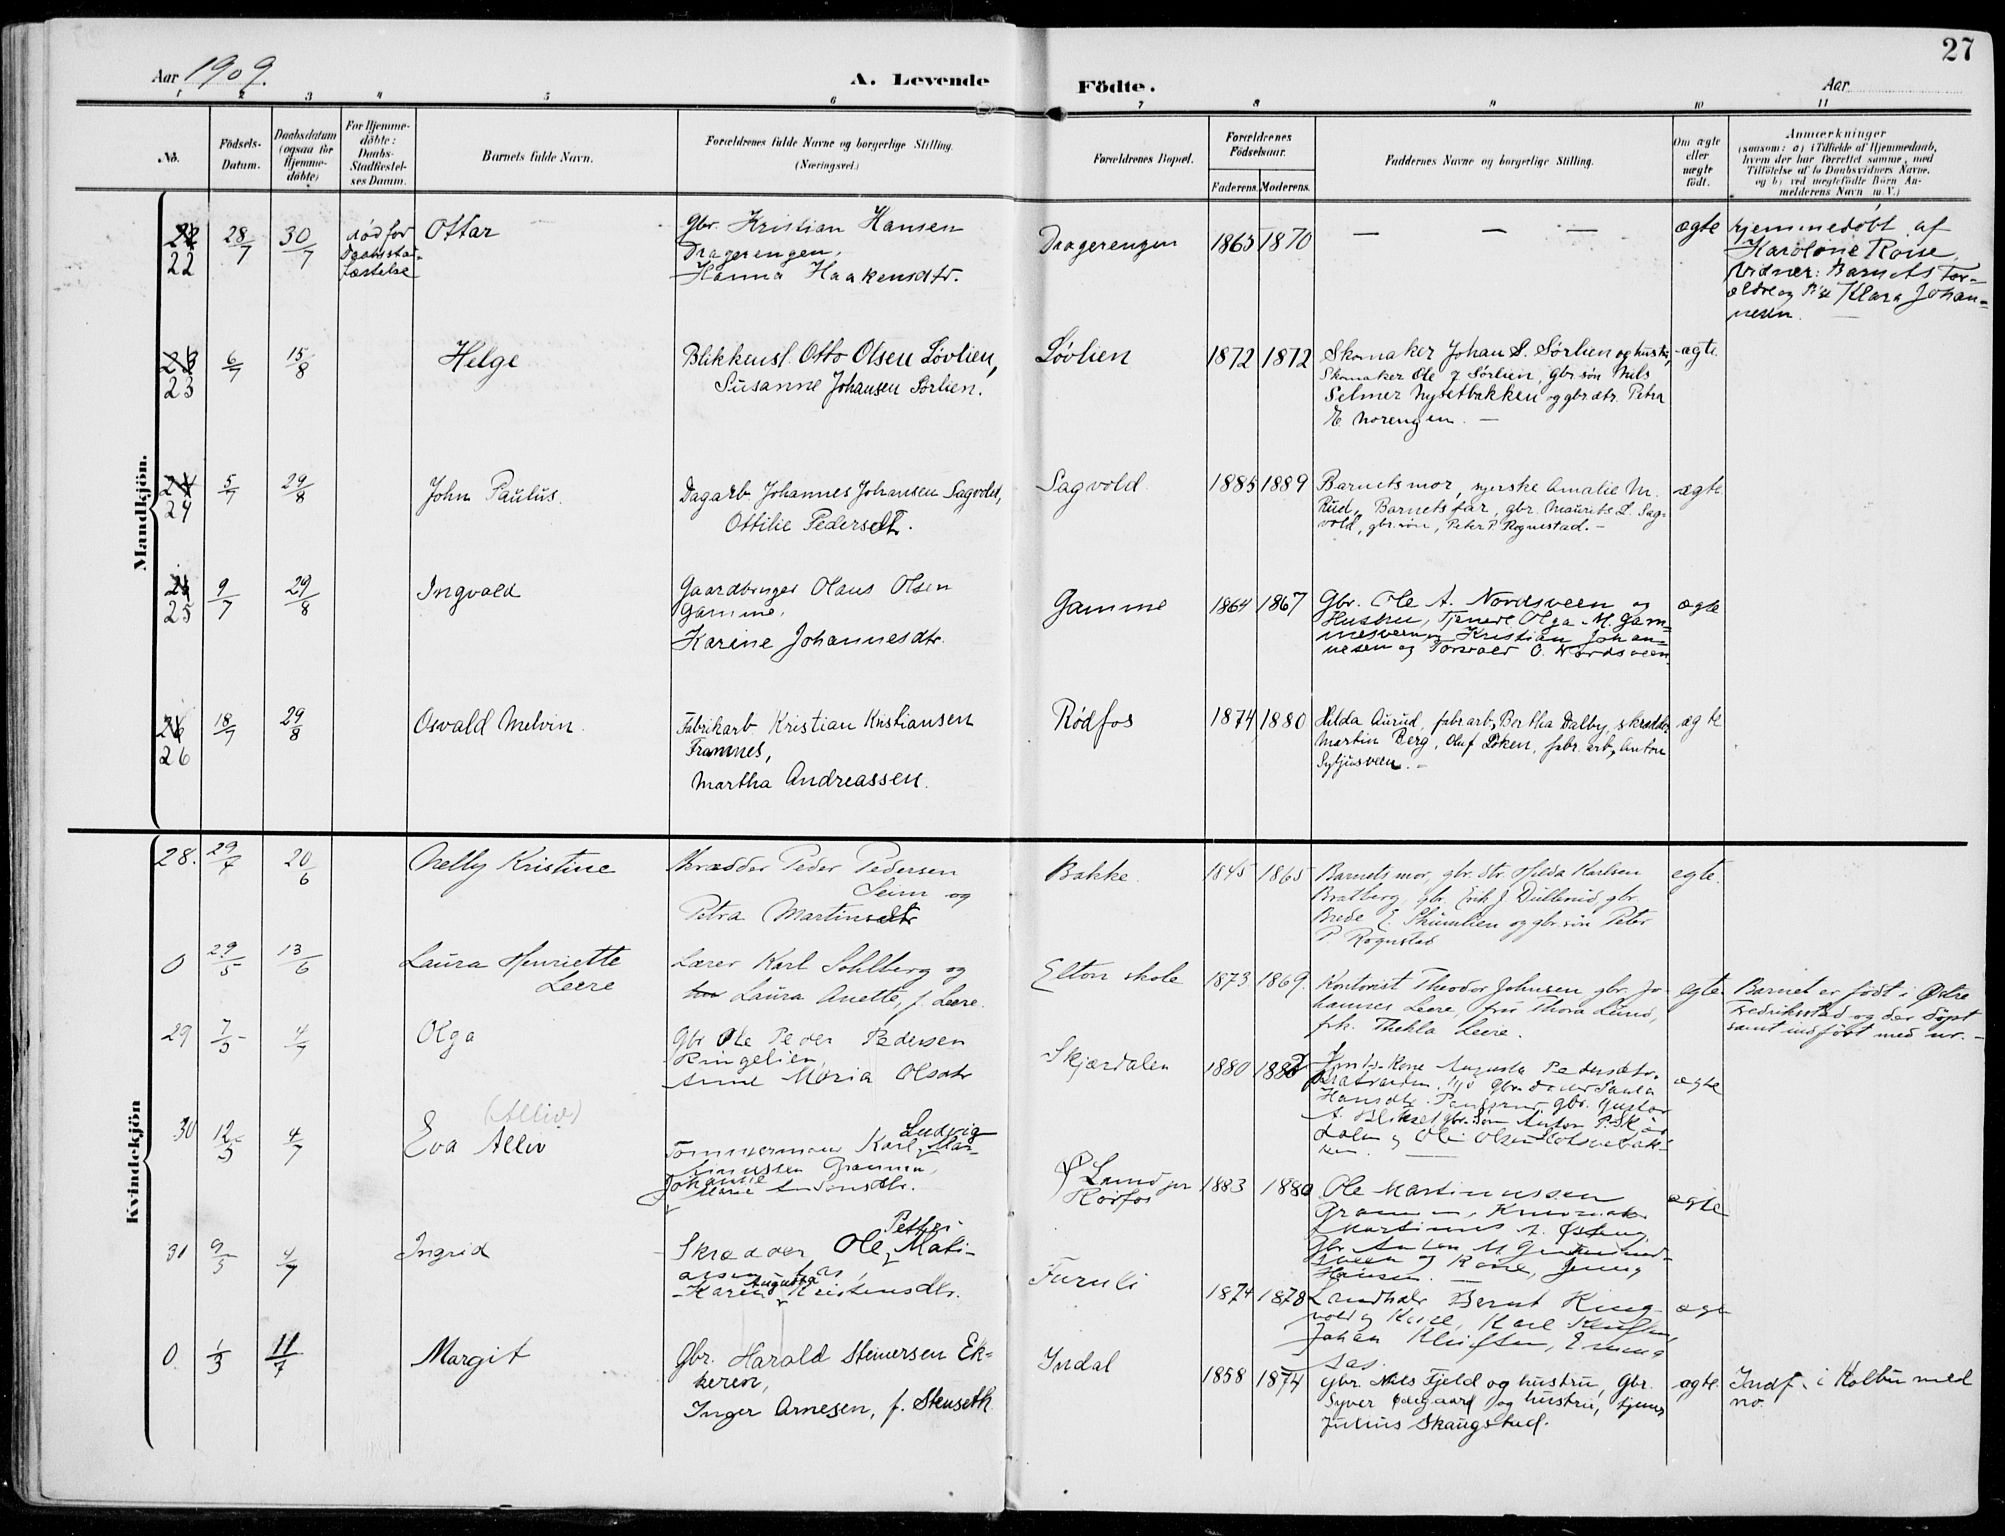 27
Aar 1909.
A. Levende Födte.
Aar
1 2 3 4 5 6 7 8 9 10 11
No.
Födsels-Datum.
Daabsdatum (ogsaa for Hjemme-döbte)
For Hjemme-döbte: Daabs-Stadfæstel-ses Datum.
Barnets fulde Navn.
Forældrenes fulde Navne og borgerlige Stilling.
(Næringsvei.)
Forældrenes Bopæl.
Forældrenes Födselsaar.
Faderens. Moderens.
Faddernes Navne og borgerlige Stilling.
Om ægte eller uægte født.
Anmærkninger
(saasom: a) i Tilfælde af Hjemmedaab,
hvem der har forrettet samme, med
Tilføielse af to Daabsvidners Navne,
og b) ved uægtefödte Börn An-
melderens Navn m. V.)
Mandkjön.
22 28/7 30/7 død før Daabsstadfæstelse Ottar
Gbr. Kristian Hansen
Dragerengen,
Hanna Haakensdtr.
Dragerengen 1865 1870 — — — ægte
Hjemmedøbt af
Karoline Roise.
Vidner: Barnets For-
ældre og Pike Klara Johan-
nesen.
23 6/7 15/8 Helge
Blikkensl. Otto Olsen Løvlien,
Susanne Johansen Sørlien.
Løvlien 1872 1872
Skomaker Johan S. Sørlien og hustru,
Skomaker Ole J Sørlien, gbr. søn Nils
Selmer Nysetbakken og gbr. dtr. Petra
E. Norengen. —
ægte
24 5/7 29/8 John Paulus.
Dagarb. Johannes Johansen Sagvold,
Ottilie Pedersdtr.
Sagvold 1885 1889
Barnets mor, syerske Amalie M.
Rud, Barnets far, gbr. Maurits L. Sag-
vold, gbr. søn, Peter P. Rognestad. –
ægte
25 9/7 29/8 Ingvald
Gaardbruger Olaus Olsen
Gamme,
Karine Johannesdtr.
Gamme 1864 1867
Gbr. Ole A. Nordsveen og
Hustru, Tjenere Olga M. Gam-
mesveen, Kristian Johan-
nesen og Torvald O. Nordsveen.
ægte
26 18/7 29/8 Osvald Melvin.
Fabrikarb. Kristian Kristiansen
Framnes,
Martha Andreassen.
Rødfos 1874 1880
Hilda Aurud, fabr.arb. Bertha Dalby, skrædder
Martin Berg, Oluf Løken, fabr. arb. Anton
Syljusveen. –
ægte
Kvindekjön
28. 29/7 20/6 Nelly Kristine
Skrædder Peder Pedersen
Leim og
Petra Martinsdtr
Bakke. 1845 1865
Barnets mor, gbr. dtr. Hilda Karlsen
Bratberg, gbr. Erik J Dullerud, gbr.
Brede E. Skumlien og gbr. søn Peter
P Rognstad
egte.
0 29/5 13/6 Laura Henriette
Leere
Lærer Karl Sohlberg og
Laura Anette, f. Leere.
Elton skole 1873 1869.
Kontorist Theodor Johnsen gbr. Jo-
hannes Leere, Fru Thora Lund,
frk. Thekla Leere.
egte
Barnet er født i Østre
Fredrikstad og der døpt
samt indført med nr. –
29 7/5 4/7 Olga
Gbr Ole Peder Pedersen
Ringelien
Anne Maria Olsdtr
Skjærdalen 1880
Kone Augusta Pedersdtr.
Hansdtr. gbr. Gustav
A. Blikset gbr. Søn Anton P. Skjær-
dalen og Ole Olsen
ægte
30 12/5 4/7 (Alliv)
Eva Alliv
Tømmermand Karl Ludvig Mar-
tinussen
Johanne Marie
Ø Lund pr
Rødfos 1883 1880
Ole Martinussen
Martinus A. Østeng,
Gbr. Anton M.
og Kone, Jenny
Hansen. —
egte
31 9/5 4/7 Ingrid
Skrædder Ole Petter Mati-
Karen Augusta Kristensdtr.
Furuli 1874 1878
Landhdl. Bernt Ring-
vold og Kone, Karl
Johan
ægte
0. 1/3 11/7 Margit
Gbr. Harald Steinersen Ek-
keren,
Inger Arnesen, f. Stenseth
Indal 1858 1874
Gbr. Nils Fjeld og hustru, Gbr.
Syver Ødegaard og hustru, tjener
Julius Skaugstad.
ægte.
Indf. i Kolbu med
no.